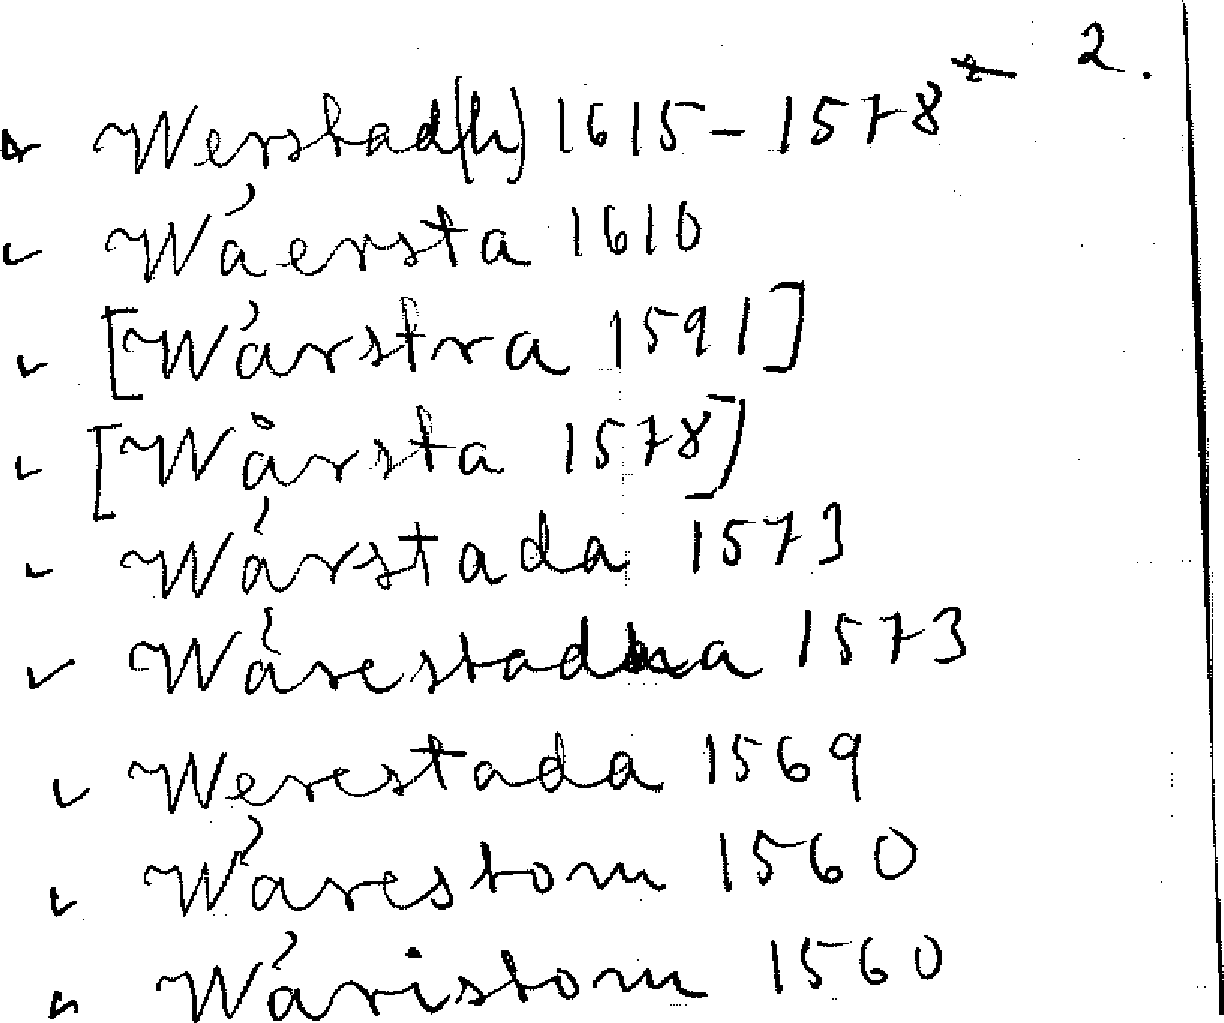 2.
Werstad(h) 1615-1578
Wáersta 1610
[Wárstra 1591]
[Wårsta 1578]
Wárstada 1573
Wárestadha 1573
Werestada 1569
Wárestom 1560
Wáristom 1560